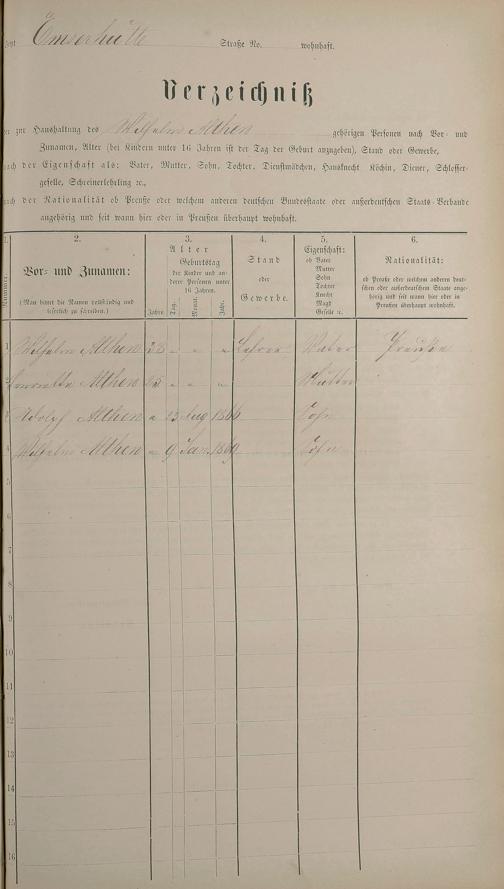 Jetzt Emserhütte Straße No. wohnhaft.
Verzeichniß
der zur Haushaltung des Wilhelm Althen gehörigen Personen nach Vor- und
Zunamen, Alter (bei Kindern unter 16 Jahren ist der Tag der Geburt anzugeben), Stand oder Gewerbe,
nach der Eigenschaft als: Vater, Mutter, Sohn, Tochter, Dienstmädchen, Hausknecht Köchin, Diener, Schlosser-
geselle, Schreinerlehrling ꝛc.,
nach der Nationalität ob Preuße oder welchem anderen deutschen Bundesstaate oder außerdeutschen Staats-Verbande
angehörig und seit wann hier oder in Preußen überhaupt wohnhaft.
1. 2. 3. 4. 5. 6.
Nummer.
Vor- und Zunamen:
(Man bittet die Namen vollständig und
leserlich zu schreiben.)
Alter
Geburtstag
der Kinder und an-
derer Personen unter
16 Jahren.
Jahre Tag. Monat. Jahr.
Stand
oder
Gewerbe.
Eigenschaft:
ob Vater
Mutter
Sohn
Tochter
Knecht
Magd
Geselle ꝛc.
Nationalität:
ob Preuße oder welchem anderen deut-
schen oder außerdeutschen Staate ange-
hörig und seit wann hier oder in
Preußen überhaupt wohnhaft.
1 Wilhelm Althen 28 " " " Lehrer Vater Preuße
2 Henriette Althen " " " Mutter
3 Adolf Althen " 23 Aug 1866 Sohn
4 Wilhelm Althen " 9 Jan. 1869 Sohn
5
6
7
8
9
10
11
12
13
14
15
16